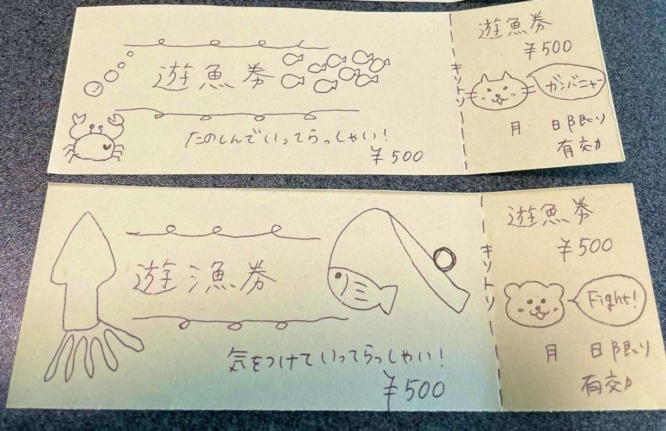 遊魚券
たのしんでいってらっしゃい!
¥500
キリトリ
遊魚券
¥500
ガンバニャー
月 日限り
有効
遊漁券
気をつけていってらっしゃい!
¥500
キリトリ
遊魚券
¥500
Fight!
月 日限り
有効